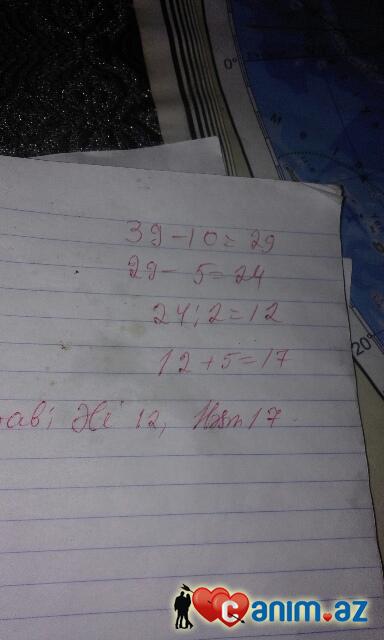 0°
39-10=29
29-5=24
24:2=12
20°
12+5=17
12, 17
canim.az